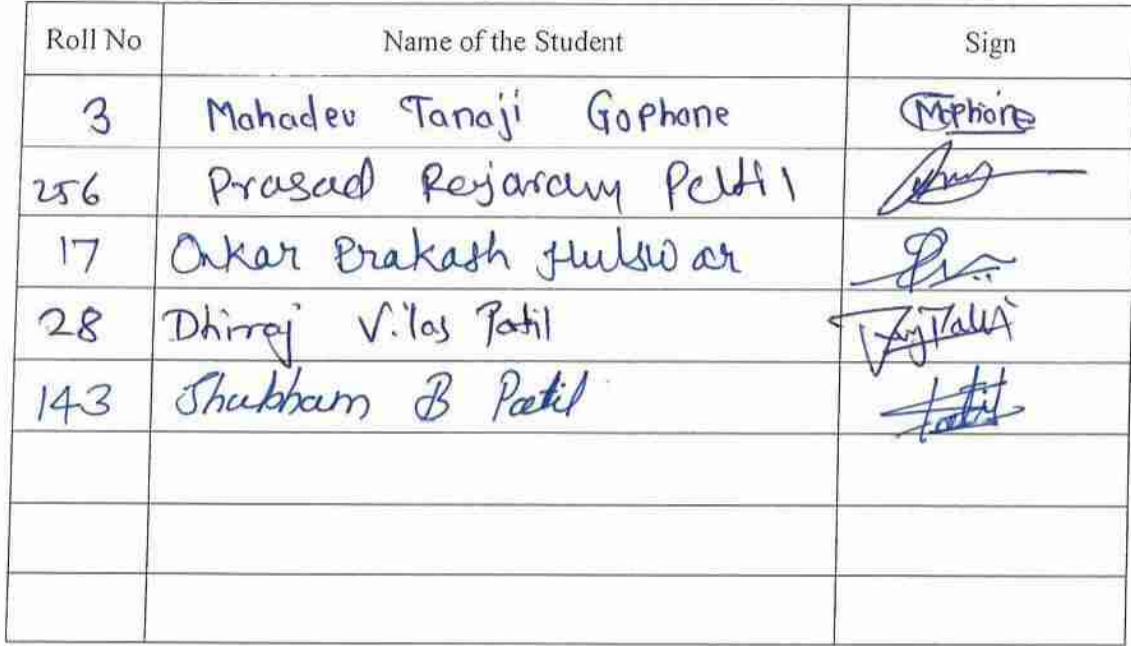 Roll No Name of the Student Sign
3 Mahadev Tanaji Gophane Mophone
256 Prasad Rajaram Patil
17 Onkar Prakash Hulswar
28 Dhiraj Vilas Patil
143 Shubham B Patil Patil